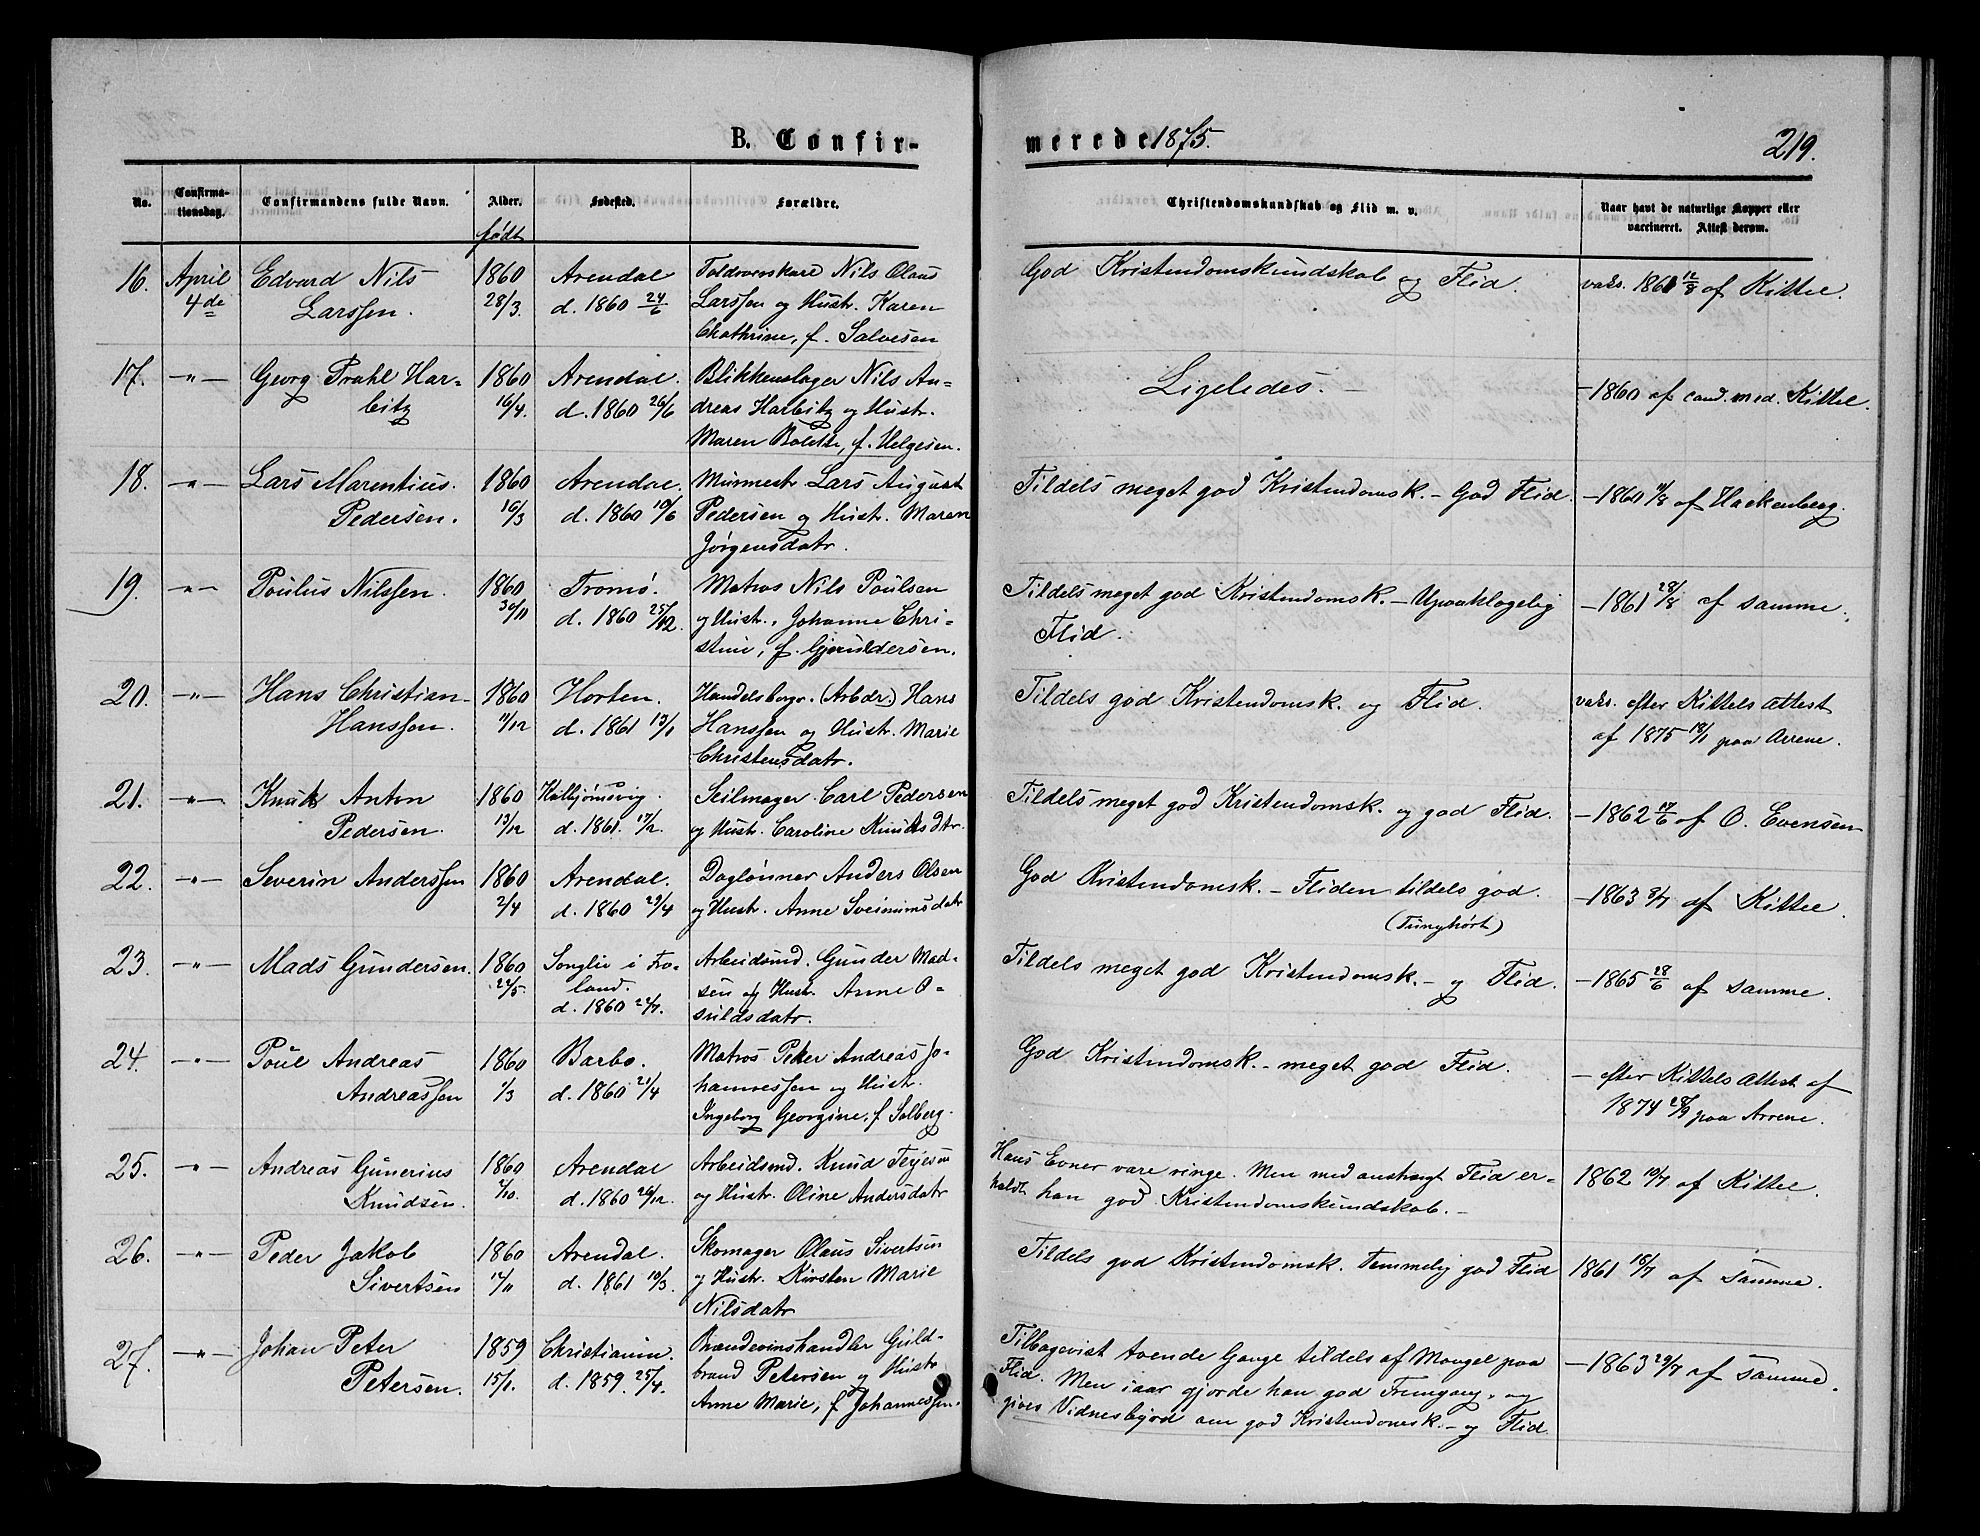 B. Confir-
merede 1875.
219.
No.
Confirma-
tionsdag.
Confirmandens fulde Navn.
Alder.
født
Fødested.
Forældre.
Christendomskundskab og Flid m. v.
Naar havt de naturlige Kopper eller
vaccineret. Attest derom.
16. April 4de
Edvard Nils
Larssen.
1860
28/3.
Arendal
d. 1860 24/6
Nils Olaus
Larssen og Hustr. Karen
Chathrine, f. Salvesen
God Kristendomskundskab og Flid.
vaks. 1861 12/8 af Kittel.
17. -"-
Georg Prahl Har-
bitz
1860
16/4.
Arendal.
d. 1860 26/6
Blikkenslager Nils An-
dreas Harbitz og Hustr.
Maren Bolette, f. Helgesen.
Ligeledes. -
- 1860 af cand. med. Kittel.
18. -"-
Lars Marentius.
Pedersen.
1860
16/3
Arendal.
d. 1860 10/6
Murmestr Lars August
Pedersen og Hustr. Maren
Jørgensdatr.
Tildels meget god Kristendomsk. - God Flid.
- 1860 af Hackenberg.
19. -"-
Poulus Nilssen.
1860
30/11
Tromø.
d. 1860 25/12.
Matros Nils Poulsen
og Hustr. Johanne Chri-
stine, f. Gjeruldersen.
Tildels meget god Kristendomsk. - Upaaklagelig
Flid.
- 1861 28/8 af samme.
20. -"-
Hans Christian
Hanssen.
1860
11/12
Horten.
d. 1861 13/1
Handelsborgr. (Arbdr.) Hans
Hanssen og Hustr. Marie
Christensdatr.
Tildels god Kristendomsk. og Flid.
vaks. efter Kittels Attest
af 1875 18/1 paa Arrene.
21. -"-
Knut Anton
Pedersen.
1860
13/12
d. 1861. 17/2.
Seilmager Carl Pedersen
og Hustr. Caroline Knutsdtr.
Tildels meget god Kristendomsk. og god Flid.
- 1862 17/6 af O. Evensen
22. -"-
Severin Anderssen
1860
2/4
Arendal.
d. 1860 29/4
Daglønner Anders Olsen
og Hustr. Anne
God Kristendomsk. - Fliden tildels god.
(Tunghørt)
- 1863 8/7 af Kittel.
23. -"-
Mads Gundersen.
1860
22/5.
Songlie i Fro-
land.
d. 1860 22/7.
Arbeidsmd. Gunder Mad-
sen og Hustr. Anne O-
suldsdatr.
Tildels meget god Kristendomsk. - og Flid.
- 1865 28/6 af samme.
24. -"-
Poul Andreas
Andreassen
1860
1/3
Barbo.
d. 1860 21/4
Matros Peter Andreas Jo-
hannessen og Hustr.
Ingeborg Georgine, f. Solberg.
God Kristendomsk. - meget god Flid.
- efter Kittels Attest af
1874 28/9 paa Arrene.
25. -"-
Andreas Gunerius
Knudsen.
1860
2/10.
Arendal
d. 1860 26/12.
Arbeidsmd. Knud Terjesen
og Hustr. Oline Andersdatr
Hans Evner vare ringe. Men med anstrengt Flid er-
holdt han god Kristendomskundskab. -
1862 10/7 af Kittel.
26. -"-
Peder Jakob
Sivertsen
1860
17/11
Arendal.
d. 1861 10/3.
Skomager Olaus Sivertsen
og Hustr. Kirsten Marie
Nilsdatr
Tildels god Kristendomsk. Temmelig god Flid
1861 18/7 af samme.
27. -"-
Johan Peter
Petersen.
1859
15/1.
Christiania.
d. 1859. 25/4.
Brændevinshandler Guld-
brand Petersen og Hustr
Anne Marie, f. Johannessen.
Tilbagevist tvende Gange tildels af Mangel paa
Flid. Men iaar gjorde han god Fremgang, og
gives Vidnesbyrd om god Kristendomsk. - og Flid.
- 1863 29/7 af samme.